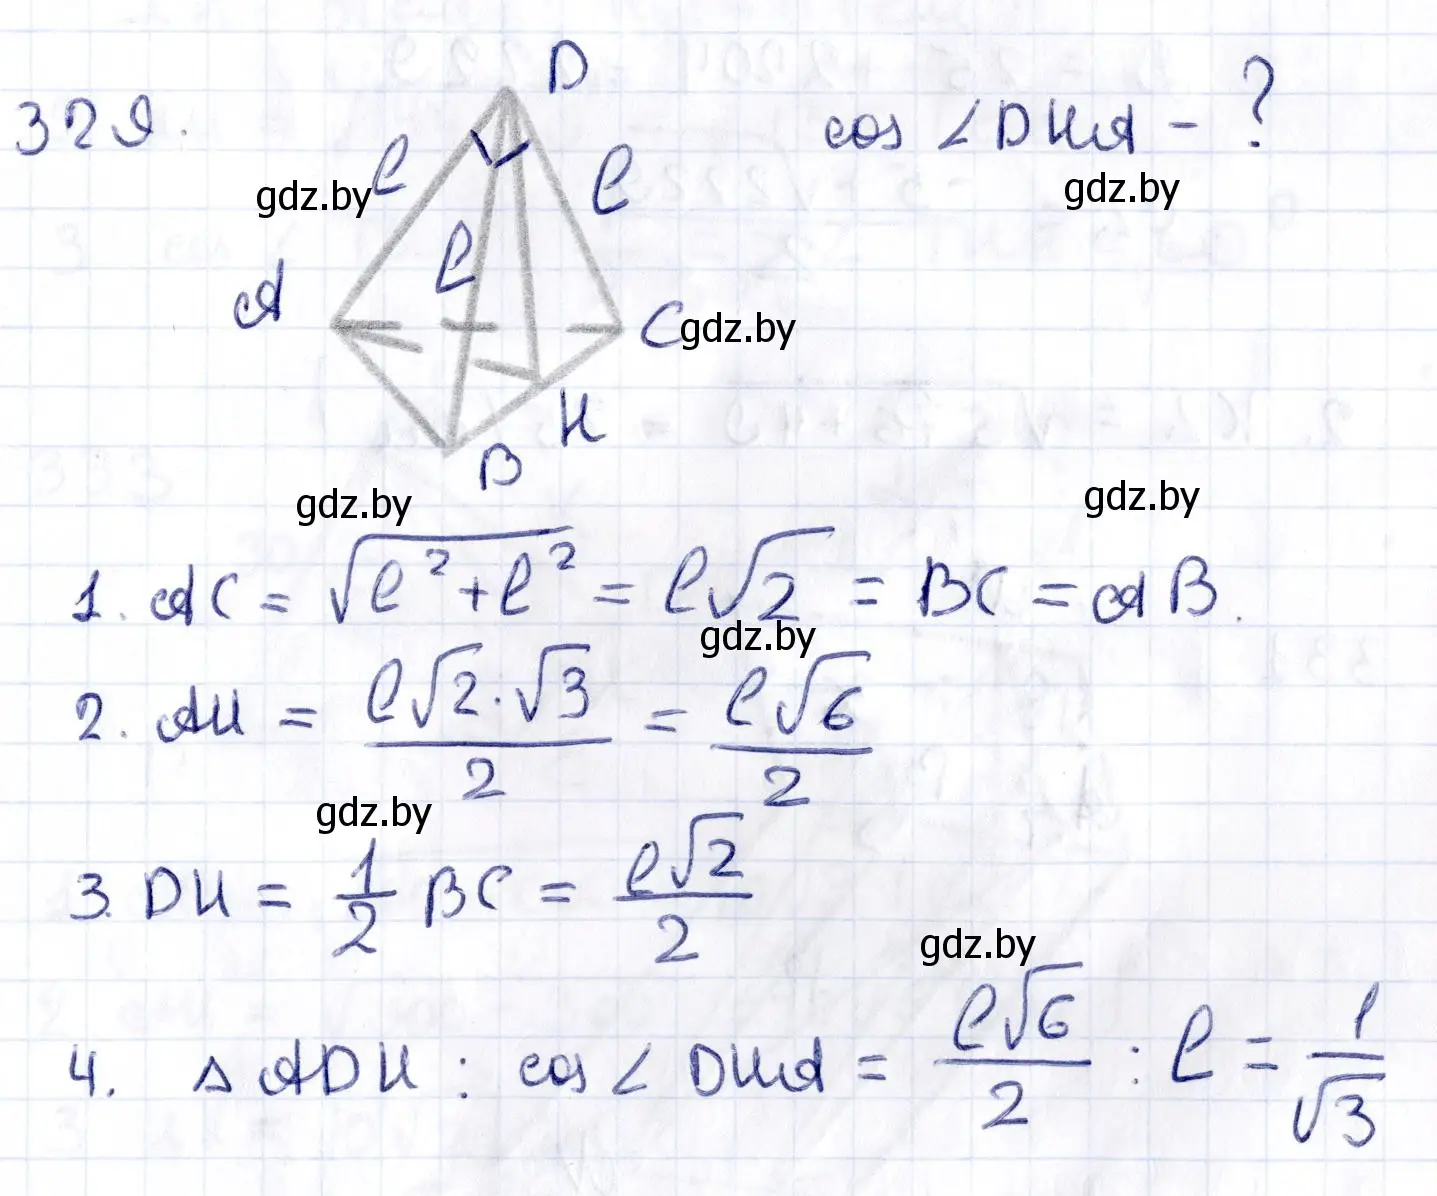 329.
D
cos ∠DHA - ?
ℓ
ℓ
gdz.by
gdz.by
ℓ
A
C
gdz.by
H
B
gdz.by
gdz.by
1. AC = √(ℓ² + ℓ²) = ℓ√2 = BC = AB.
gdz.by
2. AH = ℓ√2·√3 / 2 = ℓ√6 / 2
gdz.by
3. DH = 1/2 BC = ℓ√2 / 2
gdz.by
4. △ADH : cos ∠ DHA = ℓ√6 / 2 : ℓ = 1/√3